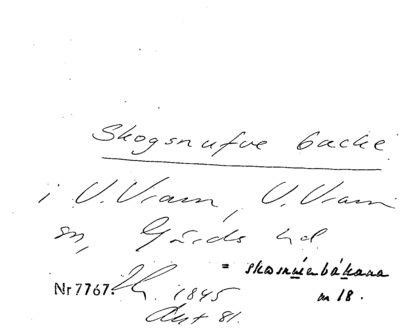 Skogsnufve backe
i V. Vram, V. Vram
sn, Gärds hd
= skosnúenbákana
Nr 7767. 1845 m 18.
Akt 81.